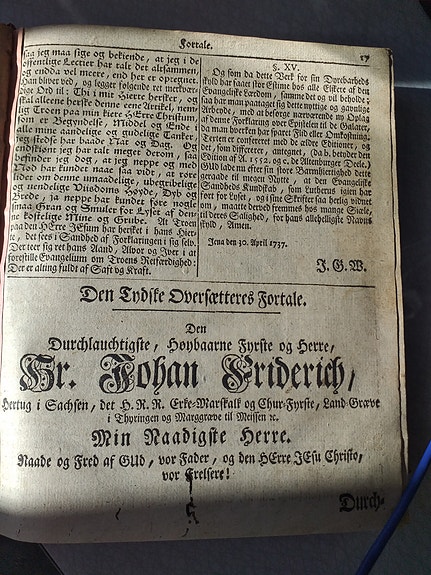 Fortale.
17
saa jeg maa sige og bekiende, at jeg i de
offentlige Lectier har talt det altsammen,
og endda vel meere, end her er opregnet.
Han blivet ved, og legger følgende ret merkvær-
dige Ord til: Thi i mit Hierte hersker, og
skal alleene herske denne eene Artikel, nemlig
Troen paa min kiere HErre Christum,
som er Begyndelse, Middel og Ende i
alle mine aandelige og gudelige Tanker,
jeg stedse har baade Nat og Dag. Og
omendskiøn jeg har talt meget derom, saa
befinder jeg dog, at jeg neppe og med
Nød har kundet naae saa vidt, at røre
lidet om denne umaadelige, ubegribelige
og uendelige Viisdoms Høyde, Dyb og
Brede, ja neppe har kundet føre nogle
smaa Gran og Smuler for Lyset af den-
ne kostelige Mine og Grube. At Troen
paa den HErre JEsum har hersket i hans Hier-
te, det sees i Sandhed af Forklaringen i sig selv.
Der seer sig ret hans Aand, Alvor og Iver i at
forestille Evangelium om Troens Retfærdighed:
Der er alting fuldt af Saft og Kraft.
§. XV.
Og som da dette Verk for sin Dyrebarheds
skyld har staaet i stor Estime hos alle Elskere af den
Evangeliske Lærdom, samme det og vil beholde;
saa har man paataget sig dette nyttige og gavnlige
Arbeyde, med at besørge nærværende ny Oplag
af denne Forklaring over Epistelen til de Galater,
da man hverken har sparet Flid eller Omkostning.
Texten er confereret med de ældre Editioner, og
det, som differerer, antegnet, (da b. betyder den
Edition af A. 1552. og c. de Altenburger Deele.)
GUd lade nu efter sin store Barmhiertighed dette
geraade til megen Nytte, at den Evangeliske
Sandheds Kundskab, som Lutherus igien har
ført for Lyset, og i sine Skrifter saa herlig vidnet
om, maatte derved fremmes hos mange Siæle,
til deres Salighed, for hans allerhelligste Navns
skyld, Amen.
Jena den 30. April 1737.
J. G. W.
Den Tydske Oversættere's Fortale.
Den
Durchlauchtigste, Høybaarne Fyrste og Herre,
Hr. Johan Friderich,
Hertug i Sachsen, det H. R. R. Ertze-Marskalk og Chur-Fyrste, Land-Græve
i Thyringen og Marggræve til Meissen ꝛc.
Min Naadigste Herre.
Naade og Fred af GUd, vor Fader, og den HErre JEsu Christo,
vor Frelsere!
Durch-